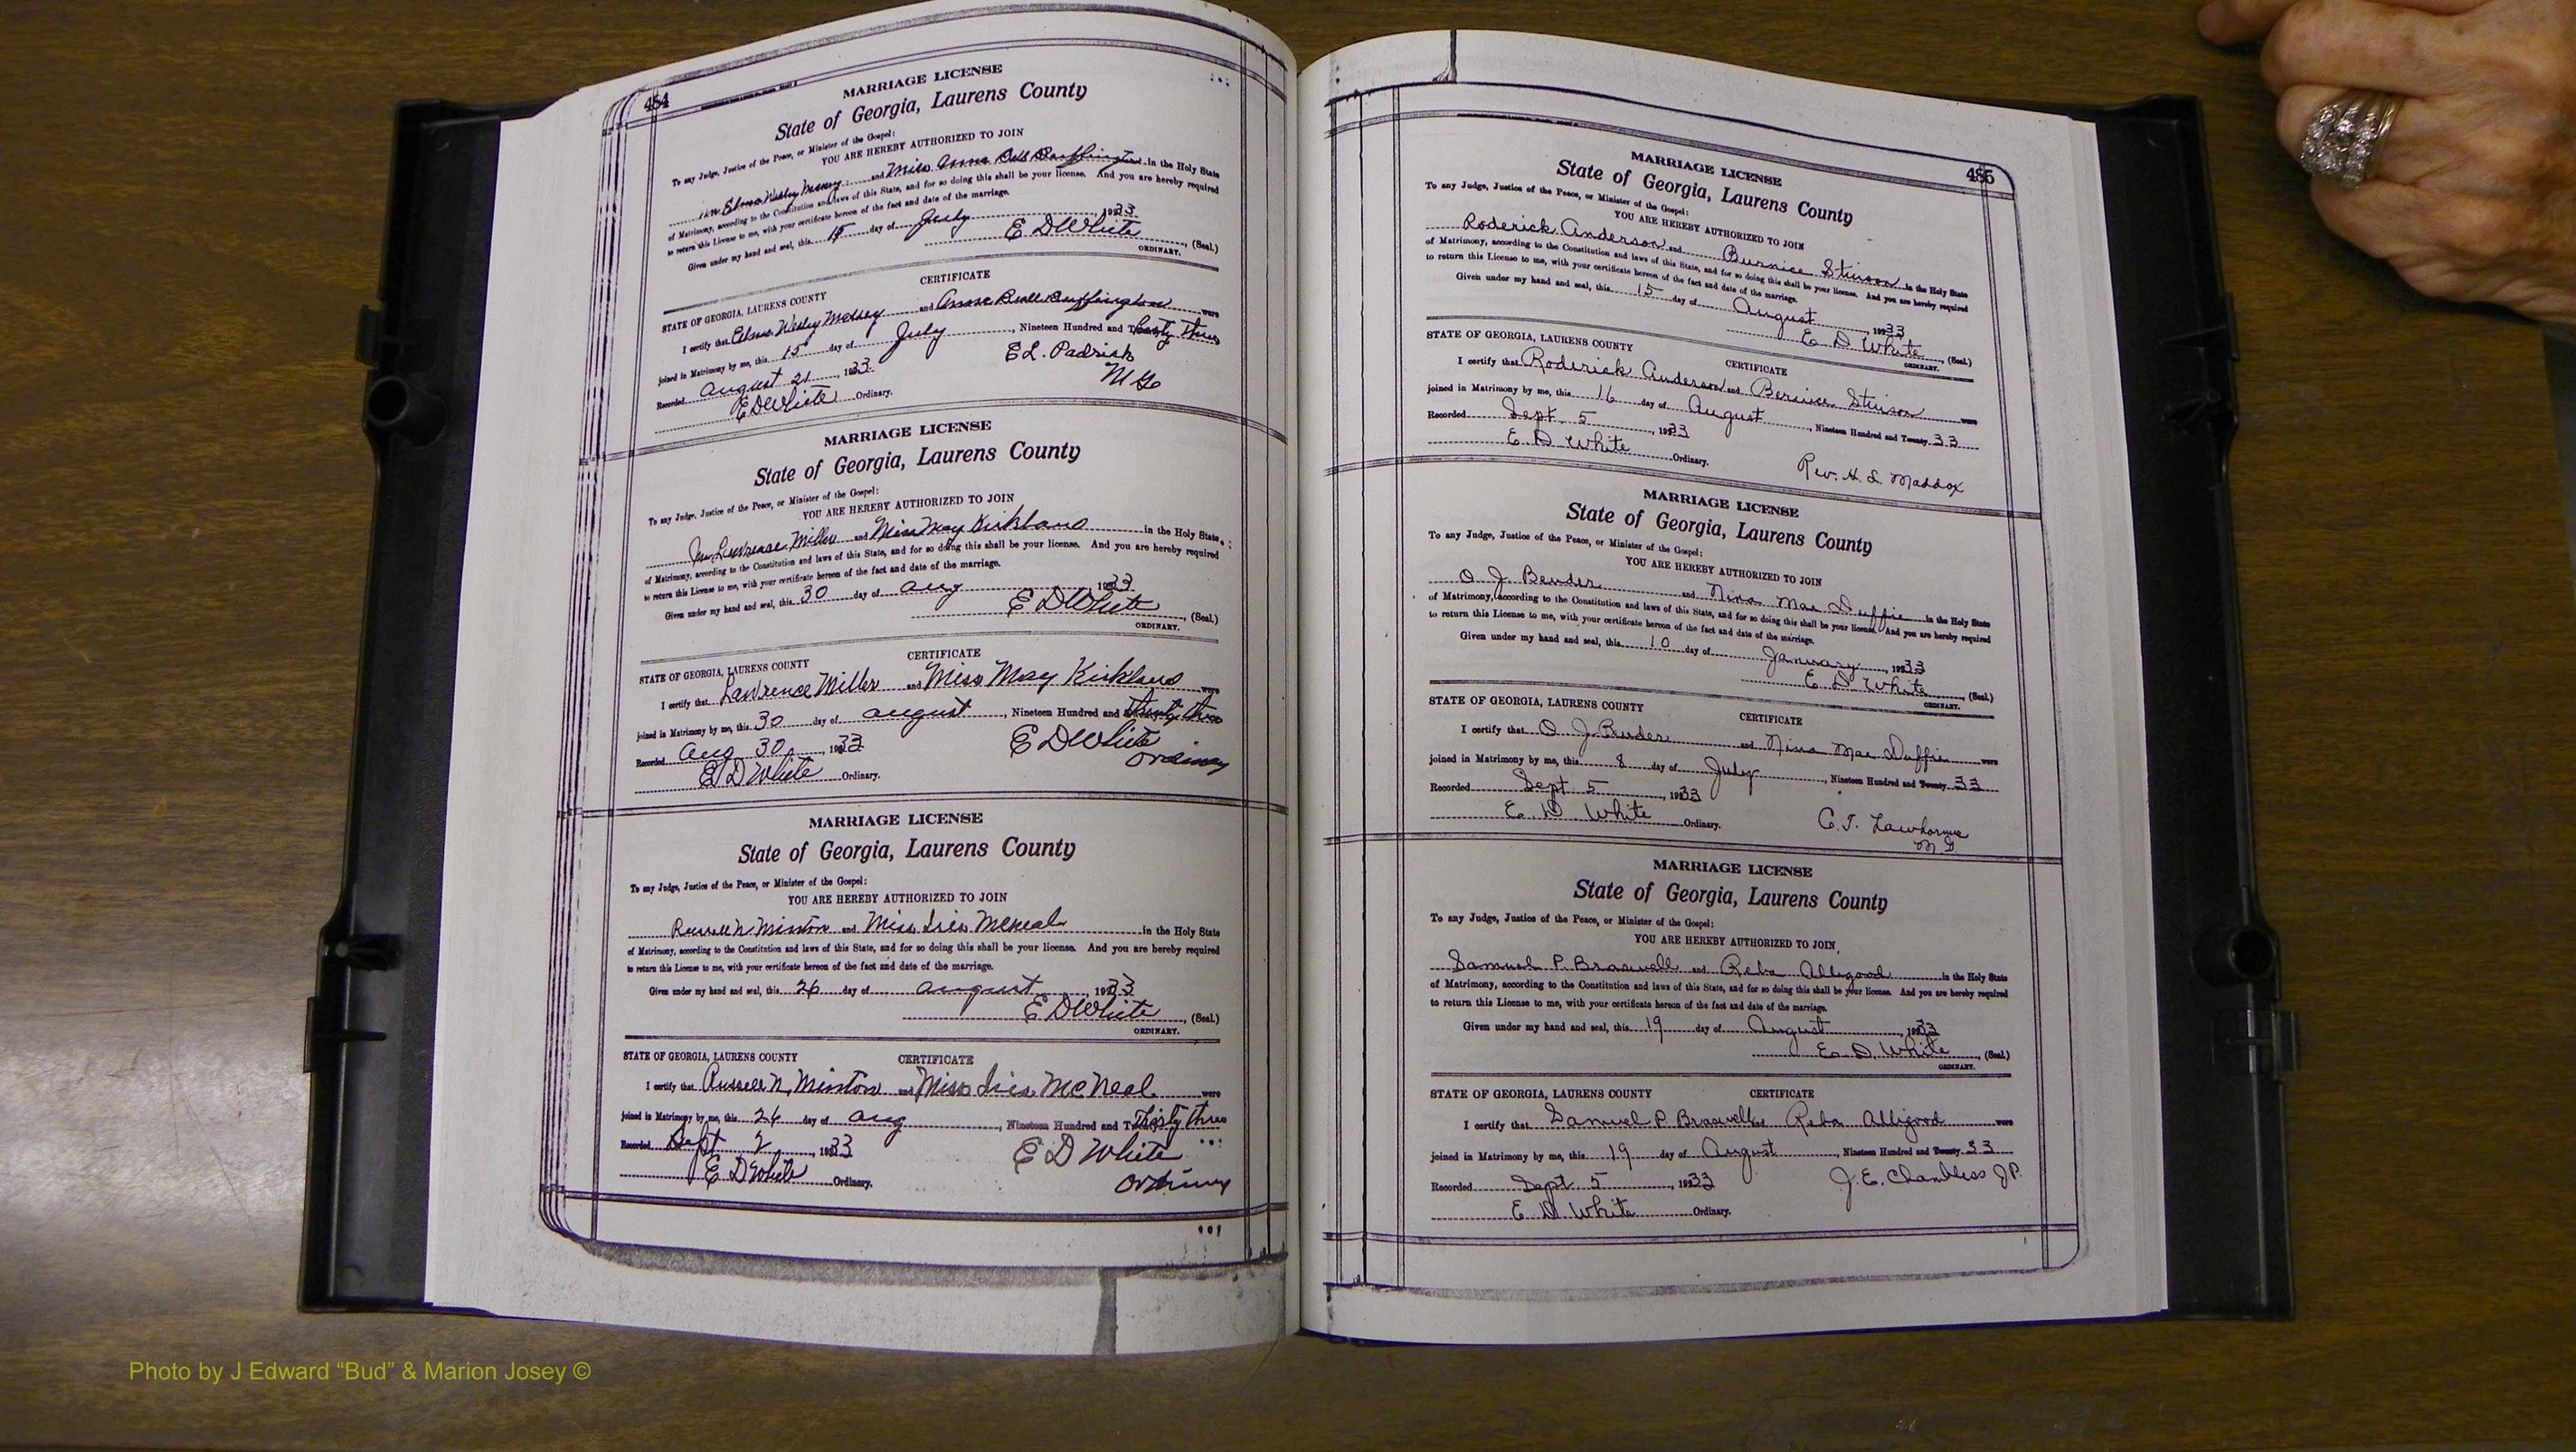 484
MARRIAGE LICENSE
State of Georgia, Laurens County
To any Judge, Justice of the Peace, or Minister of the Gospel:
YOU ARE HEREBY AUTHORIZED TO JOIN
Mr Elmo Wesley Massey and Miss Anna Bell Buffington in the Holy State
of Matrimony, according to the Constitution and laws of this State, and for so doing this shall be your license. And you are hereby required
to return this License to me, with your certificate hereon of the fact and date of the marriage.
Given under my hand and seal, this 15 day of July, 1933
E D White, (Seal.)
ORDINARY.
CERTIFICATE
STATE OF GEORGIA, LAURENS COUNTY
I certify that Elmo Wesley Massey and Anna Bell Buffington were
joined in Matrimony by me, this 15 day of July, Nineteen Hundred and thirty three
Recorded August 21, 1933
E L. Padrick
M G
E D White Ordinary.
MARRIAGE LICENSE
State of Georgia, Laurens County
To any Judge, Justice of the Peace, or Minister of the Gospel:
YOU ARE HEREBY AUTHORIZED TO JOIN
Lawrence Miller and Miss May Kirkland in the Holy State
of Matrimony, according to the Constitution and laws of this State, and for so doing this shall be your license. And you are hereby required
to return this License to me, with your certificate hereon of the fact and date of the marriage.
Given under my hand and seal, this 30 day of Aug 1933
E D White, (Seal.)
ORDINARY.
CERTIFICATE
STATE OF GEORGIA, LAURENS COUNTY
I certify that Lawrence Miller and Miss May Kirkland were
joined in Matrimony by me, this 30 day of August, Nineteen Hundred and thirty three
Recorded Aug 30, 1933
E D White
Ordinary
E D White Ordinary.
MARRIAGE LICENSE
State of Georgia, Laurens County
To any Judge, Justice of the Peace, or Minister of the Gospel:
YOU ARE HEREBY AUTHORIZED TO JOIN
Russell N Minton and Miss Iris McNeal in the Holy State
of Matrimony, according to the Constitution and laws of this State, and for so doing this shall be your license. And you are hereby required
to return this License to me, with your certificate hereon of the fact and date of the marriage.
Given under my hand and seal, this 26 day of August, 1933
E D White, (Seal.)
ORDINARY.
STATE OF GEORGIA, LAURENS COUNTY CERTIFICATE
I certify that Russell N. Minton and Miss Iris McNeal were
joined in Matrimony by me, this 26 day of Aug, Nineteen Hundred and Thirty three
Recorded Sept 2, 1933
E D White
Ordinary
E D White Ordinary.
485
MARRIAGE LICENSE
State of Georgia, Laurens County
To any Judge, Justice of the Peace, or Minister of the Gospel:
YOU ARE HEREBY AUTHORIZED TO JOIN
Roderick Anderson and Burnice Stinson in the Holy State
of Matrimony, according to the Constitution and laws of this State, and for so doing this shall be your license. And you are hereby required
to return this License to me, with your certificate hereon of the fact and date of the marriage.
Given under my hand and seal, this 15 day of August, 1933
E D White, (Seal.)
ORDINARY.
STATE OF GEORGIA, LAURENS COUNTY
CERTIFICATE
I certify that Roderick Anderson and Bernice Stinson were
joined in Matrimony by me, this 16 day of August, Nineteen Hundred and Twenty 33
Recorded Sept. 5, 1933
E D White Ordinary.
Rev. H. S. Maddox
MARRIAGE LICENSE
State of Georgia, Laurens County
To any Judge, Justice of the Peace, or Minister of the Gospel:
YOU ARE HEREBY AUTHORIZED TO JOIN
O J Bender and Nina Mae Duffie in the Holy State
of Matrimony, according to the Constitution and laws of this State, and for so doing this shall be your license. And you are hereby required
to return this License to me, with your certificate hereon of the fact and date of the marriage.
Given under my hand and seal, this 10 day of January, 1933
E D White, (Seal.)
ORDINARY.
STATE OF GEORGIA, LAURENS COUNTY
CERTIFICATE
I certify that O J Bender and Nina Mae Duffie were
joined in Matrimony by me, this 8 day of July, Nineteen Hundred and Twenty 33
Recorded Sept 5, 1933
E D White Ordinary.
C. T. Lawhorne
M G
MARRIAGE LICENSE
State of Georgia, Laurens County
To any Judge, Justice of the Peace, or Minister of the Gospel:
YOU ARE HEREBY AUTHORIZED TO JOIN
Samuel P. Braswell and Reba Alligood in the Holy State
of Matrimony, according to the Constitution and laws of this State, and for so doing this shall be your license. And you are hereby required
to return this License to me, with your certificate hereon of the fact and date of the marriage.
Given under my hand and seal, this 19 day of August, 1933
E. D. White, (Seal.)
ORDINARY.
STATE OF GEORGIA, LAURENS COUNTY CERTIFICATE
I certify that Samuel P. Braswell and Reba Alligood were
joined in Matrimony by me, this 19 day of August, Nineteen Hundred and Twenty 33
Recorded Sept 5, 1933
J. E. Chambless J.P.
E D White Ordinary.
Photo by J Edward “Bud” & Marion Josey ©